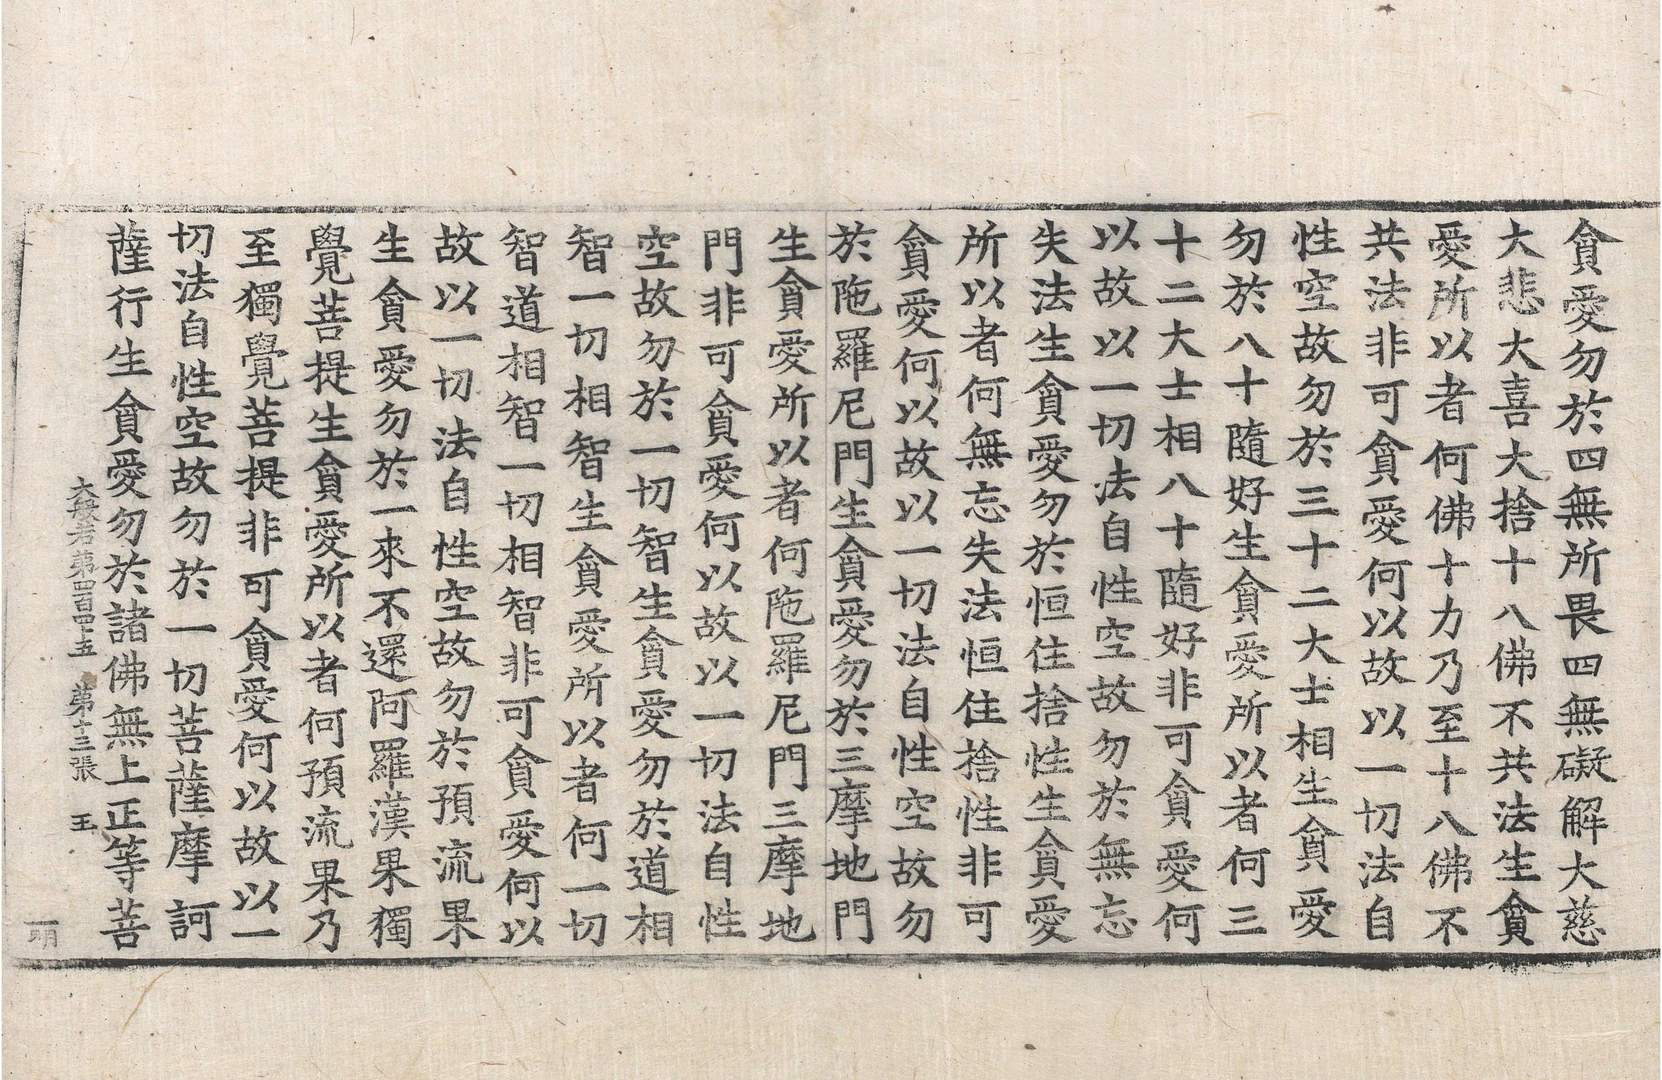 貪愛勿於四無所畏四無礙解大慈
大悲大喜大捨十八佛不共法生貪
愛所以者何佛十力乃至十八佛不
共法非可貪愛何以故以一切法自
性空故勿於三十二大士相生貪愛
勿於八十隨好生貪愛所以者何三
十二大士相八十隨好非可貪愛何
以故以一切法自性空故勿於無忘
失法生貪愛勿於恒住捨性生貪愛
所以者何無忘失法恒住捨性非可
貪愛何以故以一切法自性空故勿
於陁羅尼門生貪愛勿於三摩地門
生貪愛所以者何陁羅尼門三摩地
門非可貪愛何以故以一切法自性
空故勿於一切智生貪愛勿於道相
智一切相智生貪愛所以者何一切
智道相智一切相智非可貪愛何以
故以一切法自性空故勿於預流果
生貪愛勿於一來不還阿羅漢果獨
覺菩提生貪愛所以者何預流果乃
至獨覺菩提非可貪愛何以故以一
切法自性空故勿於一切菩薩摩訶
薩行生貪愛勿於諸佛無上正等菩
大般若第四百四十五 第十三張 玉
一明